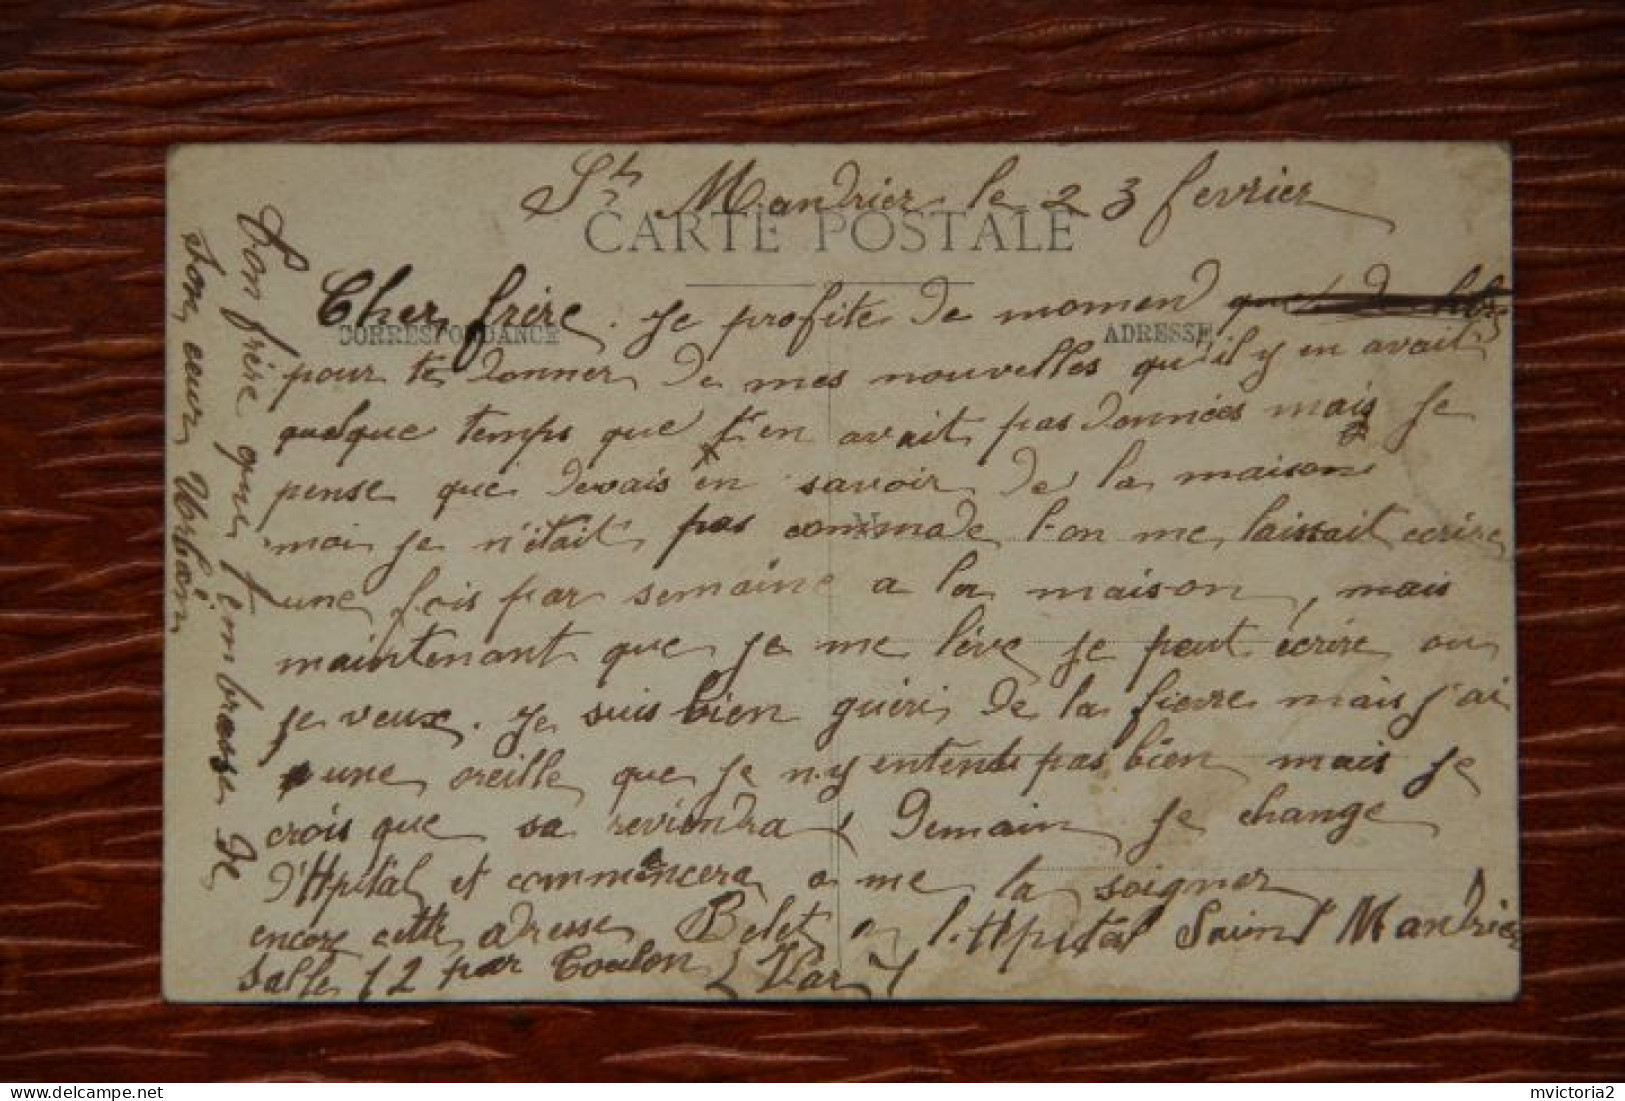 St Mandrier le 23 fevrier
CARTE POSTALE
CORRESPONDANCE
ADRESSE
Cher frère. Je profite de momend que
pour te donner de mes nouvelles qu'il y en avait
quelque temps que t'en avait pas données mais je
pense que devais en savoir de la maison
moi je n'était pas commode l'on me laissait ecrire
une fois par semaine a la maison, mais
maintenant que je me lève je peut ècrire ou
je veux. Je suis bien guèri de la fievre mais j'ai
une oreille que je n'y entends pas bien mais je
crois que sa reviendra Demain je change
d'Hpital et commencera a me la soigner
encore cette adresse Belet a l'Hpital Saint Mandrier
salle 12 par Toulon (Var)
bon frère qui t'embrasse de
son cœur Urbain
mvictoria2